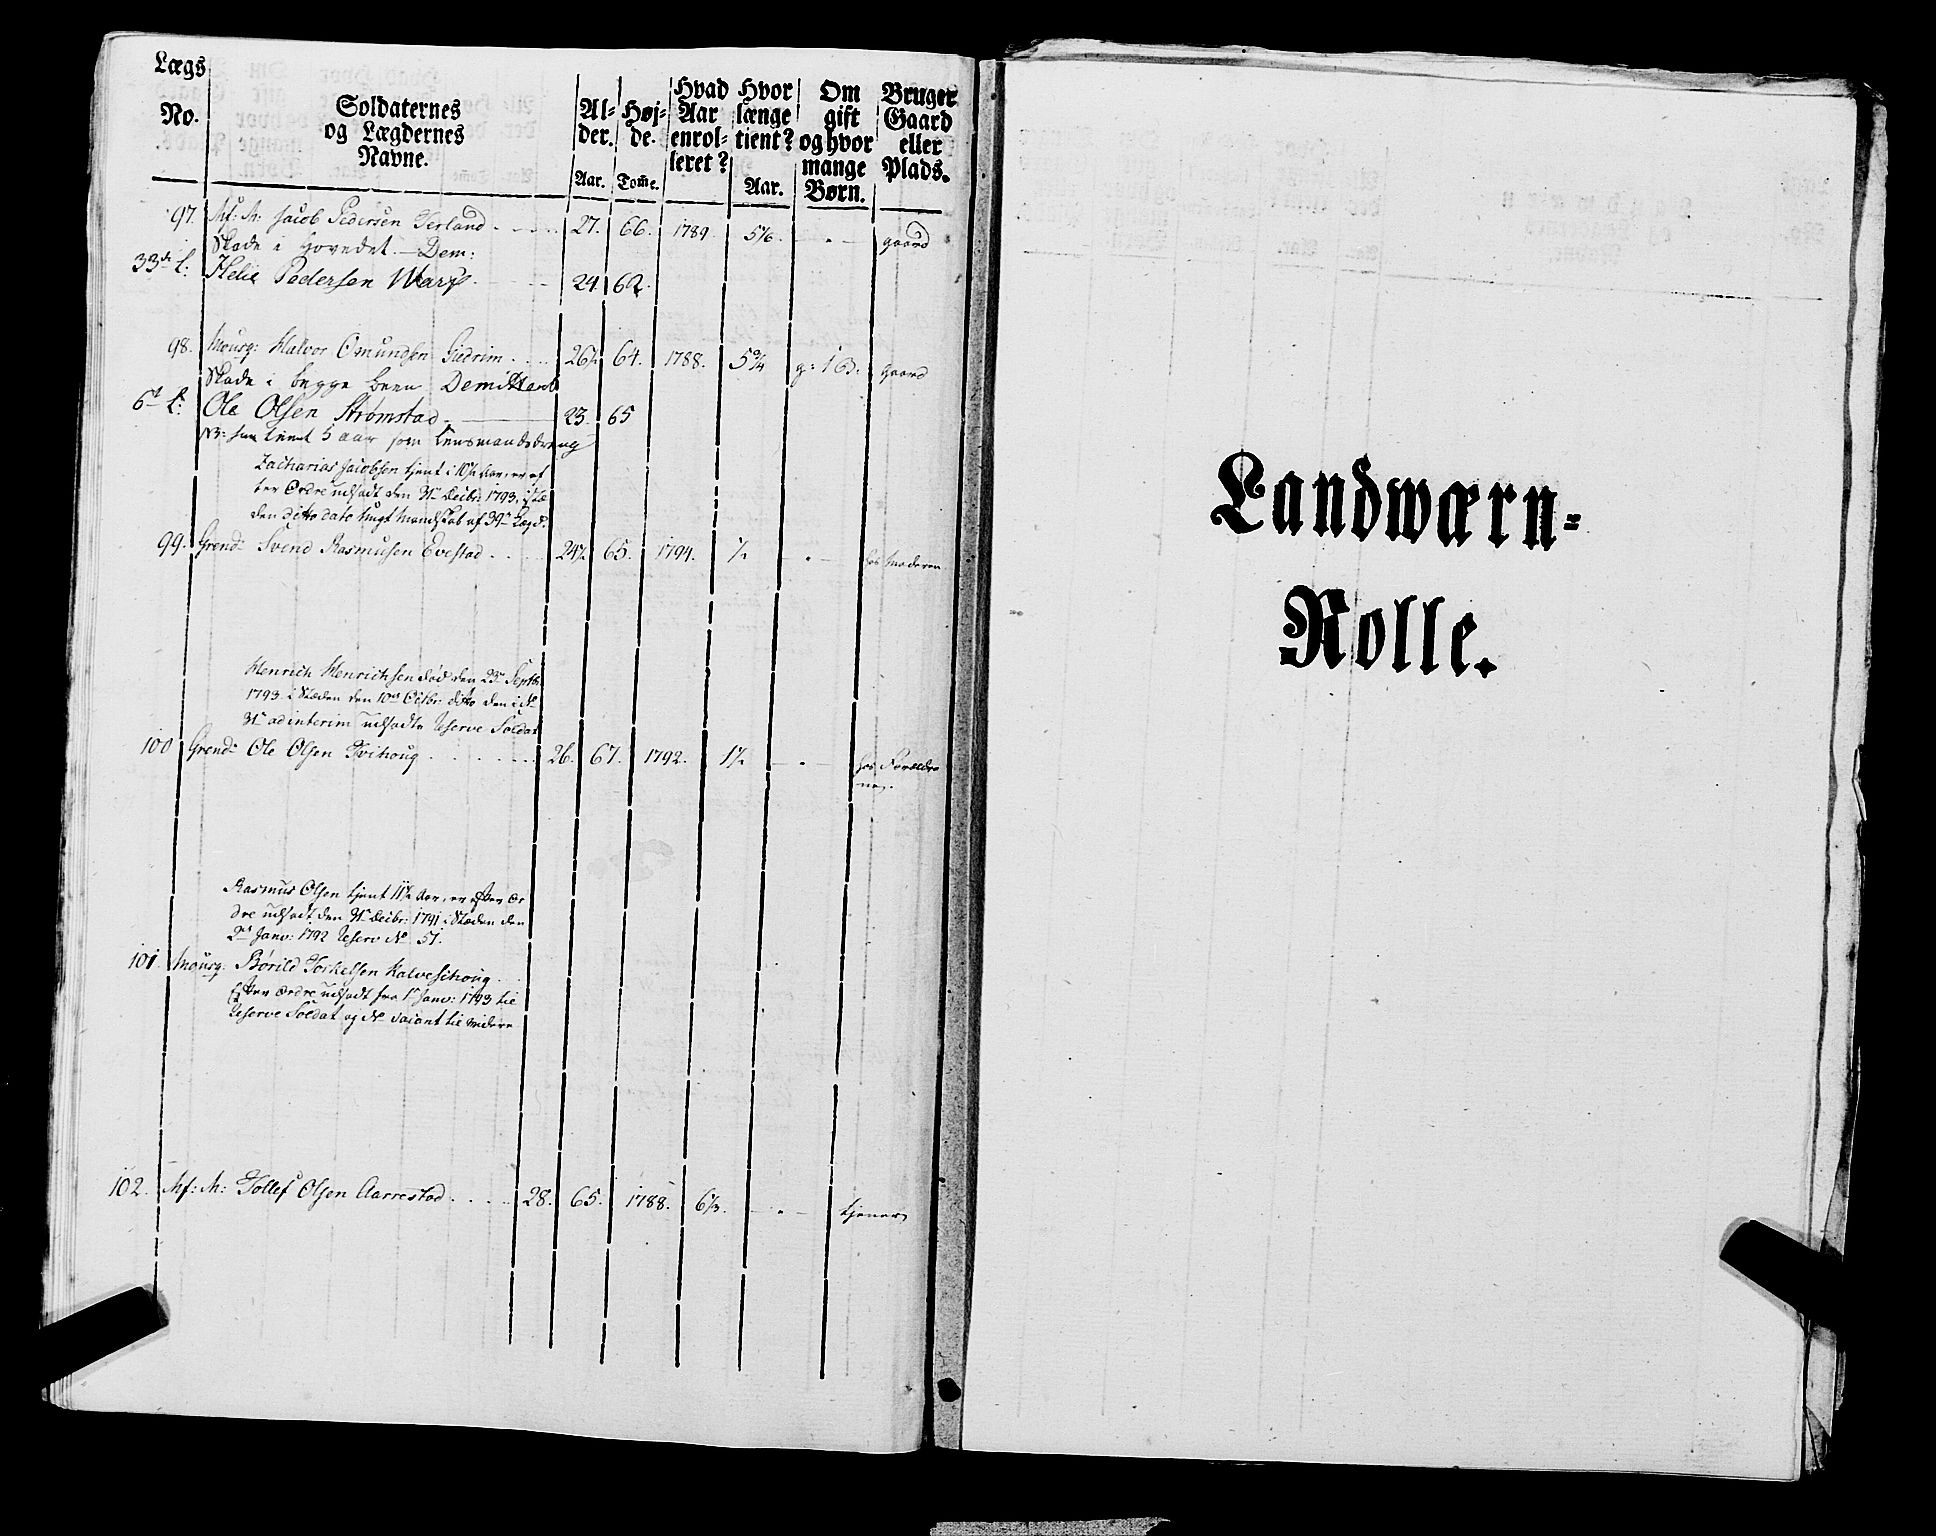 Lægs No. Soldaternes og Lægdernes Navne. Al-der. Aar. Høj-de. Tom̃e. Hvad Aar enrol-leret? Hvor længe tient? Aar. Om gift og hvor mange Børn. Bruger Gaard eller Plads.
97. Mf: M: Jacob Pedersen Terland 27. 66. 1789. 5 gaard
Skade i Hovedet Dem:
33de L: Helie Pedersen 24 62.
98. Mousq: Halvor Omundsen Giedrim 26½ 64. 1788. 5¾ g: 1 B. gaard
Skade i begge been Demittert
6t L: Ole Olsen Strømstad 23. 65
NB: han tient 5 aar som Lensmandsdreng
Zacharias Jacobsen tjent i 10½ Aar, er ef
ter Ordre udsadt den 31te Decbr: 1793, i Ste
den ditto dato tagt Mandskab af 39te Lægd.
99. Grend: Svend Rasmusen Evestad 24½ 65. 1794. ½ hos Moderen
Henrich Henrichsen død den 23de Septbr:
1793. i Stæden den 10de Octbr: ditto den i No
31te ad interim udsadte Reserve Soldat
100 Grend: Ole Olsen Tvihoug 26. 67. 1792. 1½ hos Forældre
ne.
Rasmus Olsen tjent 11½ Aar, er efter Or
dre udsadt den 31te Decbr: 1791 i Stæden den
2den Janv: 1792 Reserv No 51.
101. Mousq: Børild Torkelsen Kalveschoug
Efter Ordre udsadt fra 1te Janv: 1793 til
Reserve Soldat og No vacant til videre
102. Mf: M: Tollef Olsen Aarrestad 28. 65. 1788. 6⅓. tjener
Landwærn-
Rolle.